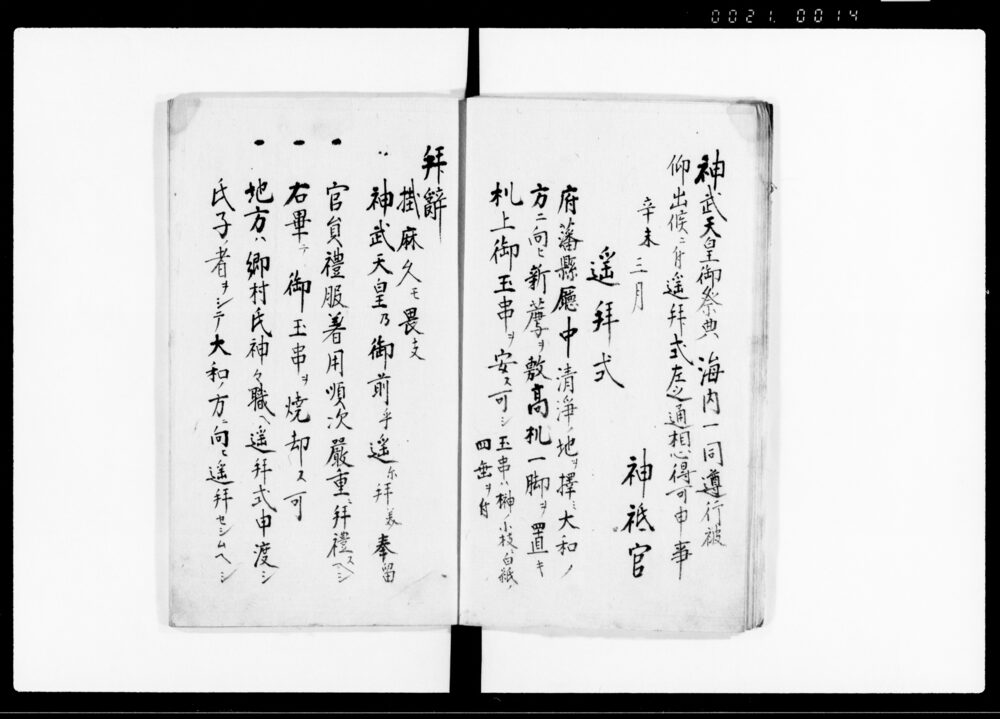 0021 0014
神武天皇御祭典海内一同遵行被
仰出候ニ付遥拝式左之通相心得可申事
辛未三月
神祇官
遥拝式
府藩縣廳中清浄ノ地ヲ擇ミ大和ノ
方ニ向ヒ新薦ヲ敷高机一脚ヲ置キ
机上御玉串ヲ安ス可シ玉串ハ榊ノ小枝ニ白紙ノ
四垂ヲ付
拝辭
掛麻久モ畏支
神武天皇乃御前乎遥尓拝美奉留
官員禮服着用順次嚴重ニ拝禮スヘシ
右畢テ御玉串ヲ焼却ス可
地方ハ郷村氏神々職ヘ遥拝式申渡シ
氏子ノ者ヲシテ大和ノ方ニ向ヒ遥拝セシムヘシ